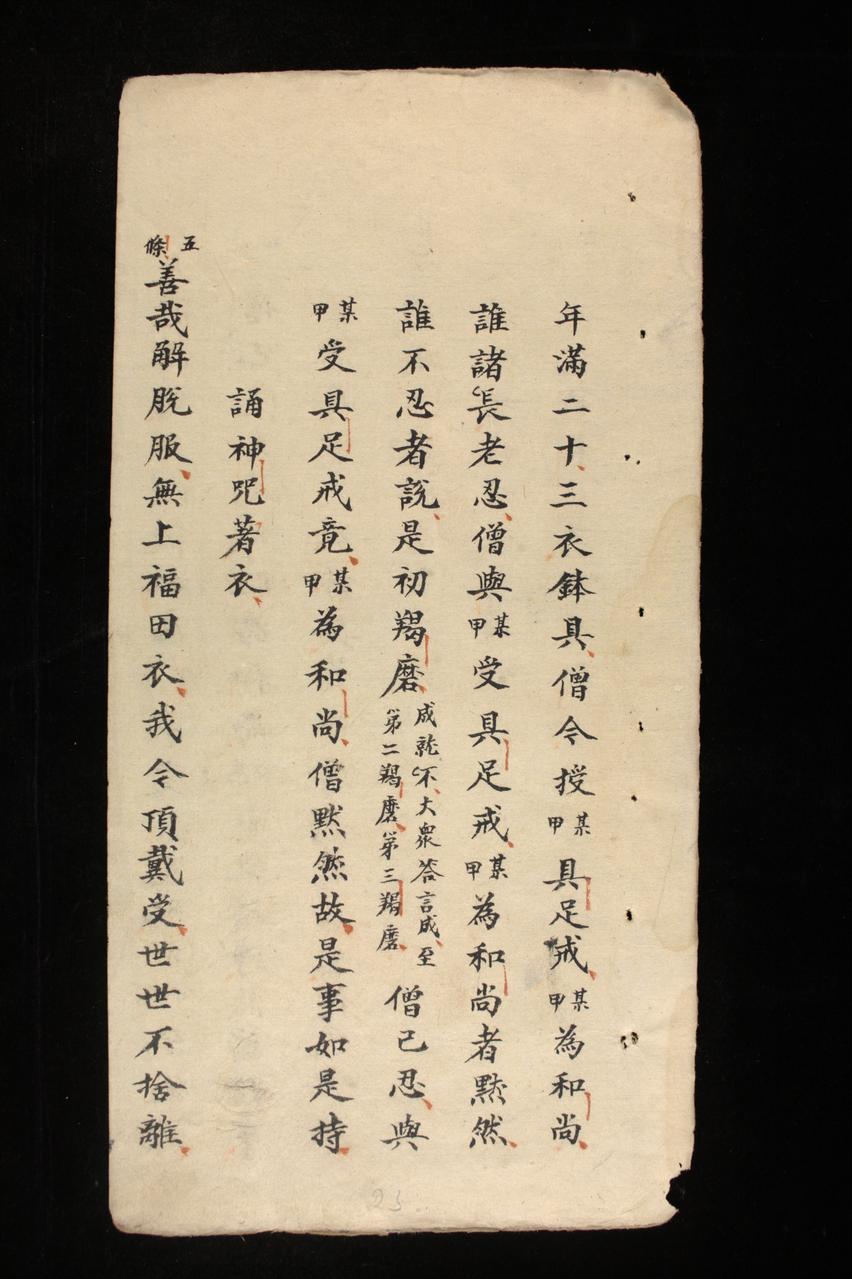 年滿二十三衣鉢具僧令授某甲具足戒某甲為和尚
誰諸長老忍僧與某甲受具足戒某甲為和尚者黙然
誰不忍者說是初羯磨成就不大衆答言成至第二羯磨第三羯磨僧已忍與
某甲受具足戒竟某甲為和尚僧黙然故是事如是持
誦神咒著衣
五條善哉解脫服無上福田衣我令頂戴受世世不捨離
23